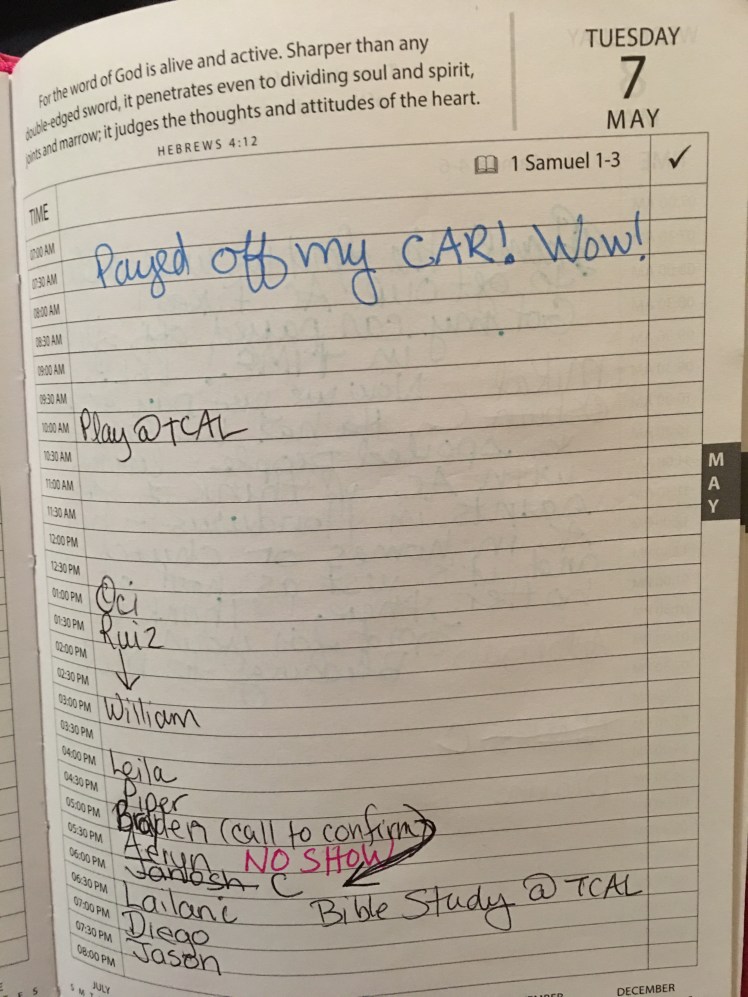 For the word of God is alive and active. Sharper than any
double-edged sword, it penetrates even to dividing soul and spirit,
joints and marrow; it judges the thoughts and attitudes of the heart.
HEBREWS 4:12
TUESDAY
7
MAY
1 Samuel 1-3 ✓
TIME
07:00 AM
Payed off my CAR! Wow!
07:30 AM
08:00 AM
08:30 AM
09:00 AM
09:30 AM
10:00 AM Play @ TCAL
10:30 AM
11:00 AM
11:30 AM
12:00 PM
12:30 PM
01:00 PM Oci
01:30 PM Ruiz
02:00 PM ↓
02:30 PM
03:00 PM William
03:30 PM
04:00 PM Leila
04:30 PM Piper
05:00 PM Braden (call to confirm)
05:30 PM Aeryn NO SHOW
06:00 PM Janosh C
06:30 PM Lailani Bible Study @ TCAL
07:00 PM Diego
07:30 PM Jason
08:00 PM
MAY
JULY
DECEMBER